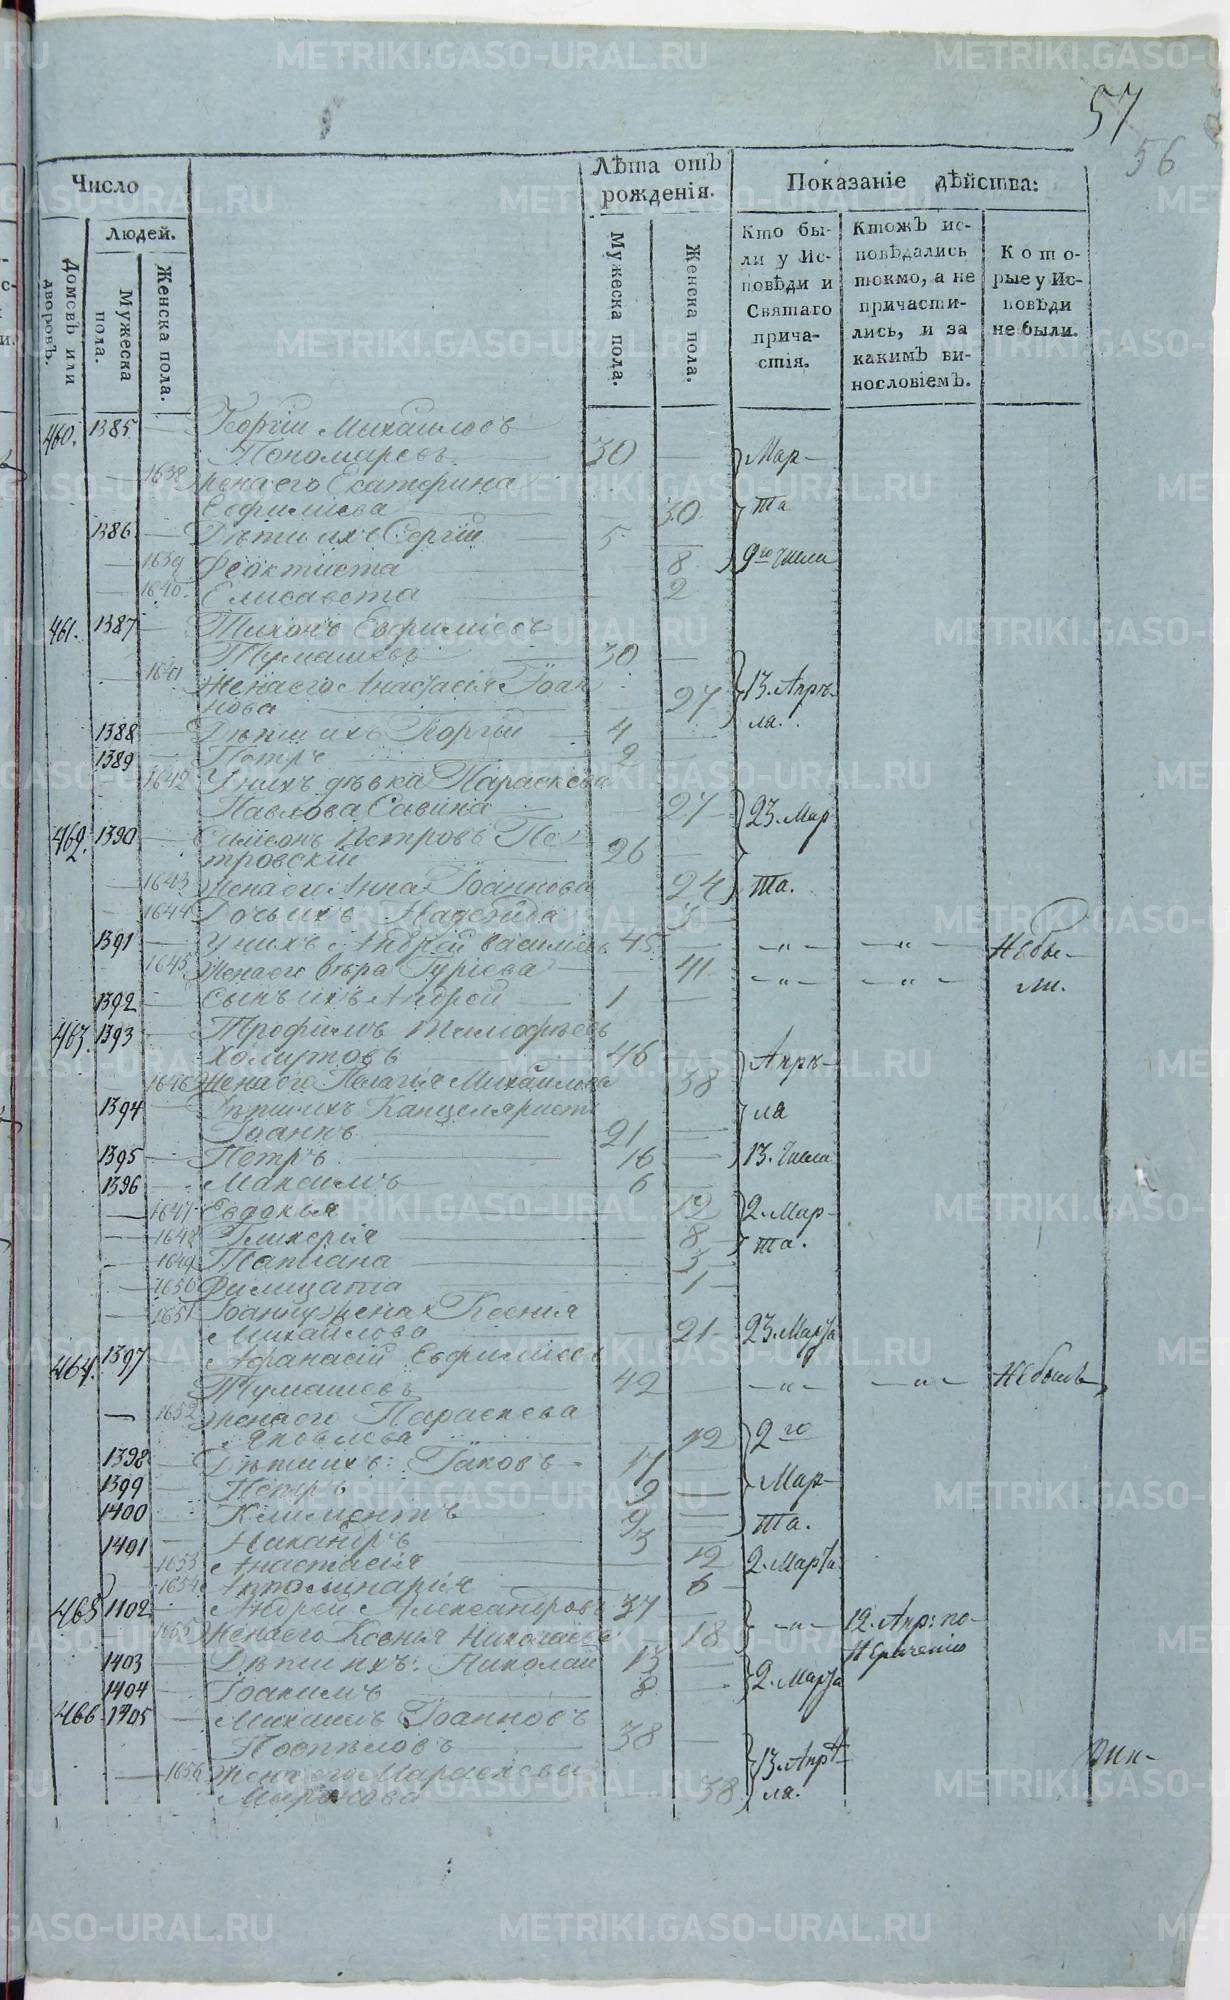 57
56
Число
Людей.
Домовъ или дворовъ.
Мужеска пола.
Женска пола.
Лѣта отъ рожденія.
Мужеска пола.
Женска пола.
Показаніе дѣйства:
Кто были у Исповѣди и Святаго причастія.
Ктожъ исповѣдались токмо, а не причастились, и за какимъ винословіемъ.
Которые у Исповѣди не были.
460. 1385 — Георгій Михаиловъ
Пономаревъ 30 — Мар-
— 1638 Жена его Екатерина
Евфиміева — 30 та
1386 — Дѣти ихъ Сергій 5 —
— 1639 Феоктиста 8 9го числа
— 1640. Елисавета 2
461. 1387 — Тихонъ Евфиміевъ
Тумашевъ 30 —
— 1641 Жена его Анастасія Іоан
нова 27 13. Апрѣ-
ла.
1388 — Дѣти ихъ Георгій 4 —
1389 — Петръ 2 —
1642 У нихъ дѣвка Параскева
Павлова Савина — 27 23. Мар
462. 1390 — Симеонъ Петровъ Пе-
тровскій 26 —
— 1643 Жена его Анна Іоаннова 24 та.
— 1644 Дочь ихъ Надежда 3
1391 — У нихъ Андрей Василіевъ 45 — — „ — — „ — Не бы-
1645 Жена его Вѣра Гуріева — 41 — „ — — „ — ли.
1392 — Сынъ ихъ Андрей 1 —
463. 1393 — Трофимъ Тимофѣевъ
Хомутовъ 46 — Апрѣ-
— 1646 Жена его Пелагія Михаилова 38
1394 — Дѣти ихъ Канцеляристъ ла
Іоаннъ 21 —
1395 — Петръ 16 — 13. числа
1396 — Максимъ 6 —
— 1647 Евдокья 12 2. Мар-
— 1648 Гликерія 8 та.
— 1649 Татіана 3
— 1650 Филицата 1
— 1651 Іоанну жена Ксения
Михайлова — 21 23. Марта
464. 1397 — Афанасій Евфиміевъ
Тумашевъ 42 — — „ — — „ — Не былъ
— 1652 Жена его Параскева
Яковлева — 42 2го
1398 — Дѣти ихъ: Іаковъ 17 —
1399 — Петръ 9 — Мар-
1400 — Климентъ 9 — та.
1401 — Никандръ 3 —
1653 Анастасія 12 2. Марта
— 1654 Апполинарія 6
465 1402 — Андрей Александровъ 37 — — „ — 12. Апр: по-
— 1655 Жена его Ксенья Николаева 18
1403 — Дѣти ихъ: Николай 13 —
1404 — Іоакимъ 8 — 2. Марта
466 1405 — Михаилъ Іоанновъ
Поспѣловъ 38 —
— 1656 Жена его Параскева 13. Апрѣ-
Миронова — 38 ла.